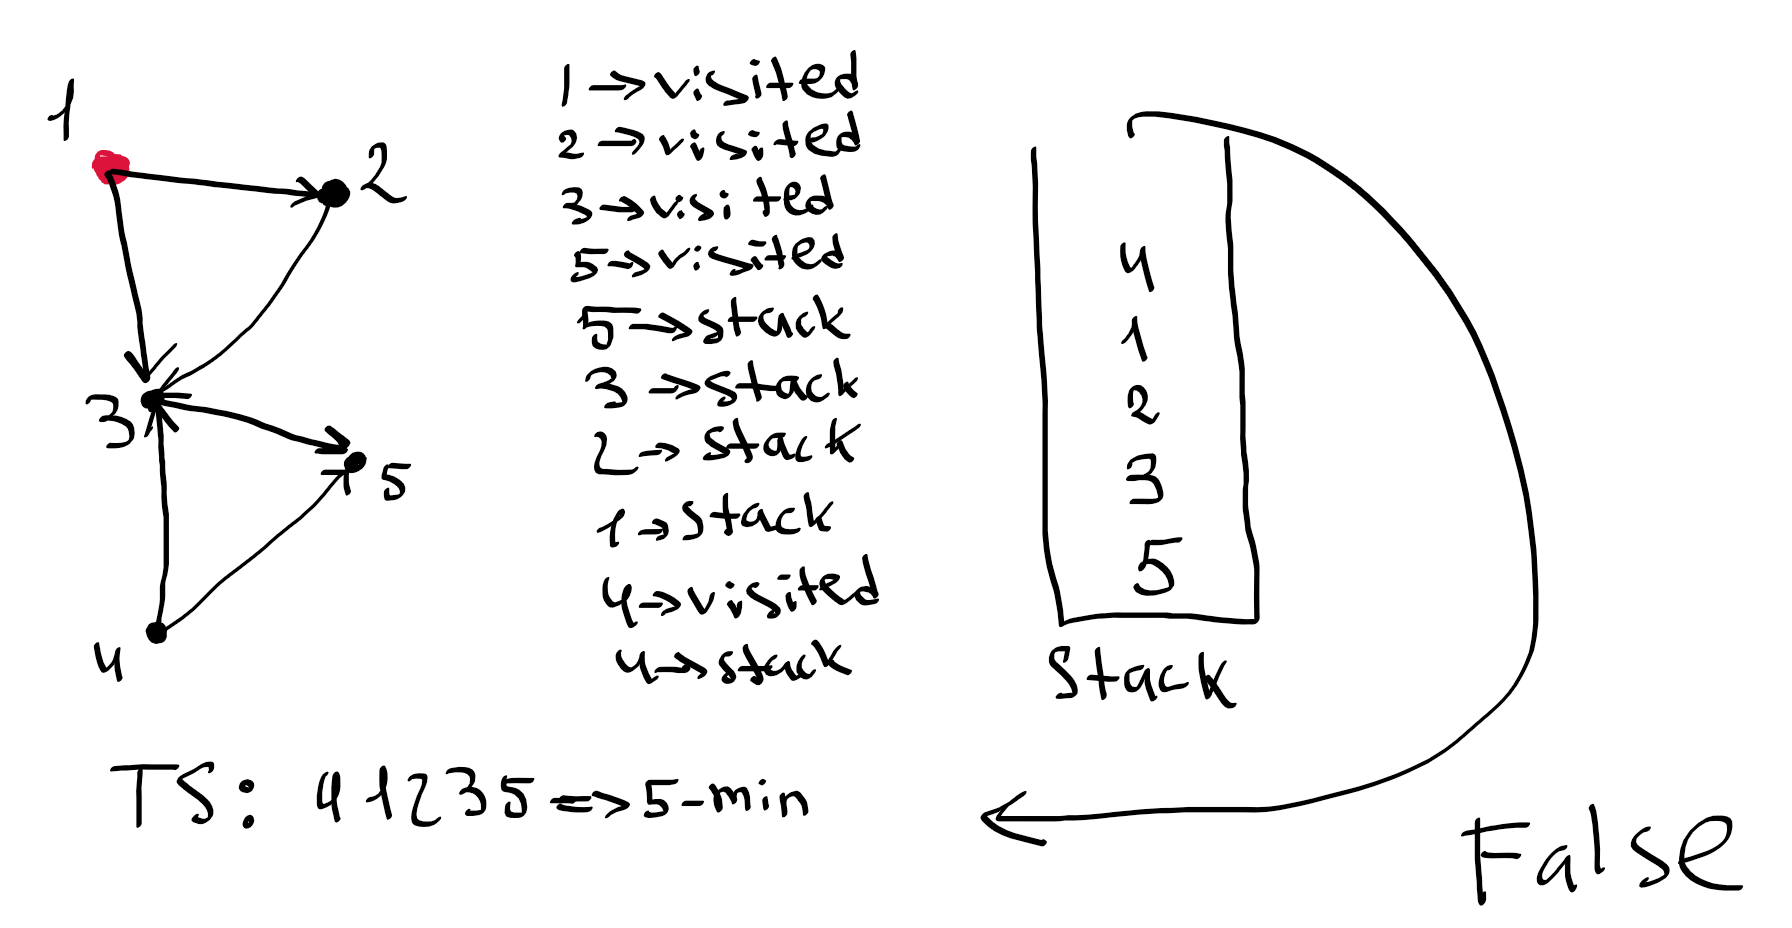 1
2
3
5
4
1→visited
2→visited
3→visited
5→visited
5→stack
3→stack
2→stack
1→stack
4→visited
4→stack
4
1
2
3
5
Stack
TS: 41235=>5-min
False